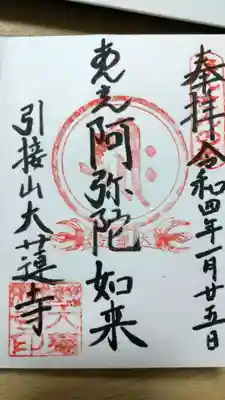 奉拝 令和四年一月廿五日
恵光 阿弥陀如来
引接山大蓮寺